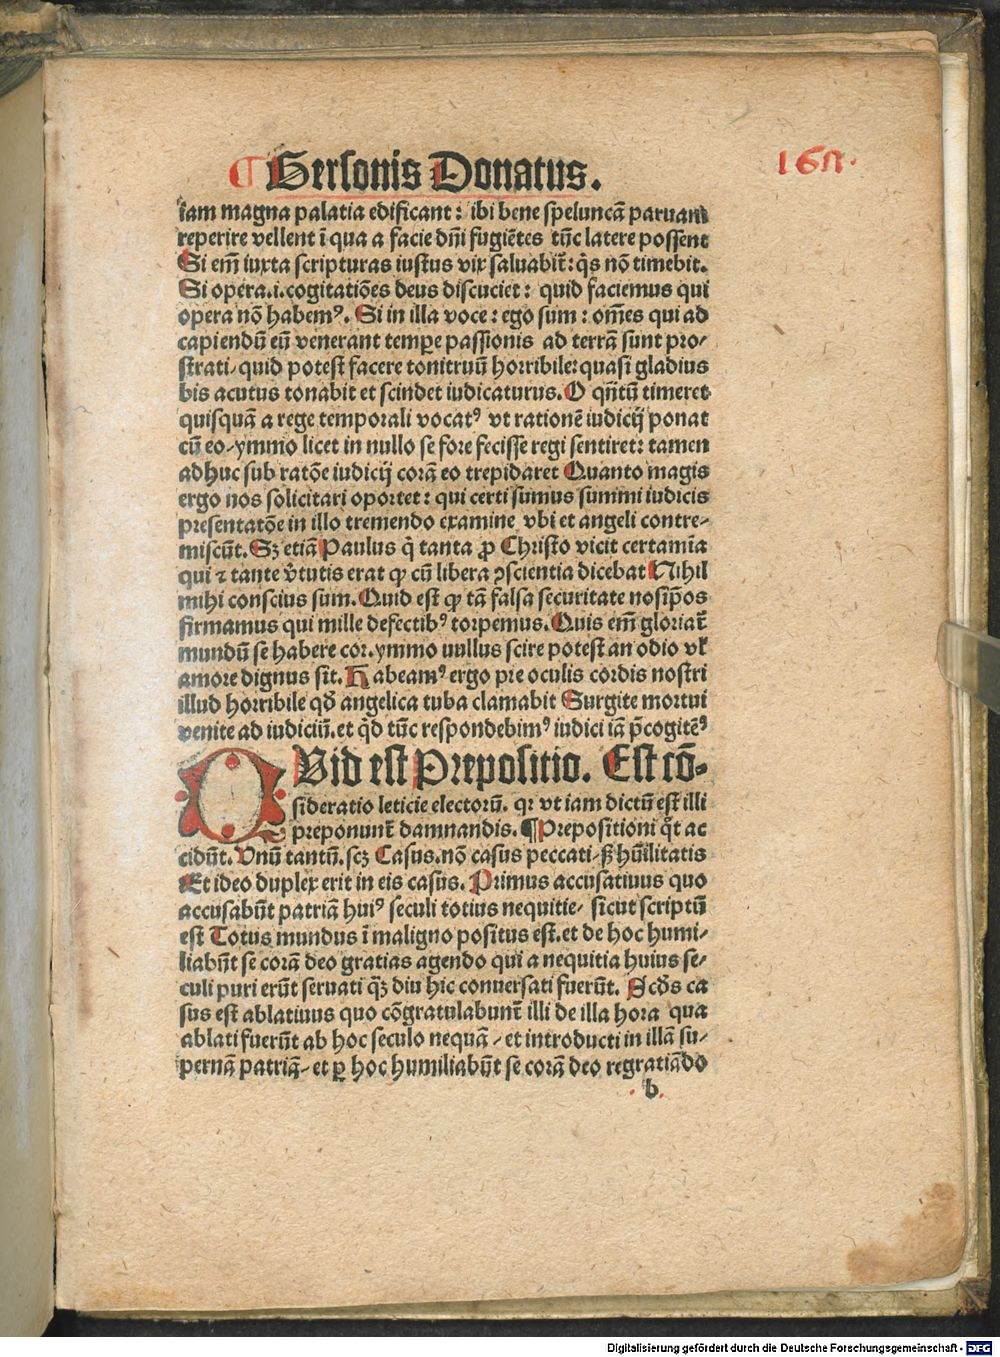 ¶ Gersonis Donatus.
iam magna palatia edificant: ibi bene speluncā paruam
reperire vellent ī qua a facie dn̄i fugiētes tūc latere possent
Si em̄ iuxta scripturas iustus vix saluabit̄: q̄s nō timebit.
Si opera.i.cogitatiōes deus discuciet: quid faciemus qui
opera nō habemꝰ. Si in illa voce: ego sum: om̄es qui ad
capiendū eū venerant tempe passionis ad terrā sunt pro-
strati/quid potest facere tonitruū horribile: quasi gladius
bis acutus tonabit et scindet iudicaturus. O qn̄tū timeret
quisquā a rege temporali vocatꝰ vt rationē iudicij ponat
cū eo/ymmo licet in nullo se fore fecisse regi sentiret: tamen
adhuc sub ratōe iudicij corā eo trepidaret Quanto magis
ergo nos solicitari oportet: qui certi sumus summi iudicis
presentatōe in illo tremendo examine vbi et angeli contre-
miscūt. Sꝫ etiā Paulus q̄ tanta ꝓ Christo vicit certamīa
qui ⁊ tante v̄tutis erat ꝙ cū libera ꝯscientia dicebat Nihil
mihi conscius sum. Quid est ꝙ tā falsa securitate nosip̄os
firmamus qui mille defectibꝰ torpemus. Quis em̄ gloriat̄
mundū se habere cor.ymmo nullus scire potest an odio vł
amore dignus sit. Habeamꝰ ergo pre oculis cordis nostri
illud horribile qđ angelica tuba clamabit Surgite mortui
venite ad iudiciū.et q̇d tūc respondebimꝰ iudici iā p̄cogitēꝰ
QVid est Prepositio. Est cō-
sideratio leticie electorū. qꝛ vt iam dictū est illi
preponunt̄ damnandis. ¶Prepositioni q̄t ac
cidūt. Vnū tantū.scꝫ Casus.nō casus peccati/sꝫ hūilitatis
Et ideo duplex erit in eis casus. Primus accusatiuus quo
accusabūt patriā huiꝰ seculi totius nequitie/ sicut scriptū
est Totus mundus ī maligno positus est.et de hoc humi-
liabūt se corā deo gratias agendo qui a nequitia huius se-
culi puri erūt seruati q̄ꝫ diu hic conuersati fuerūt. Scđs ca
sus est ablatiuus quo cōgratulabunt̄ illi de illa hora qua
ablati fuerūt ab hoc seculo nequā/et introducti in illā su-
pernā patriā/et ꝑ hoc humiliabūt se corā deo regratiādo
b
Digitalisierung gefördert durch die Deutsche Forschungsgemeinschaft - DFG